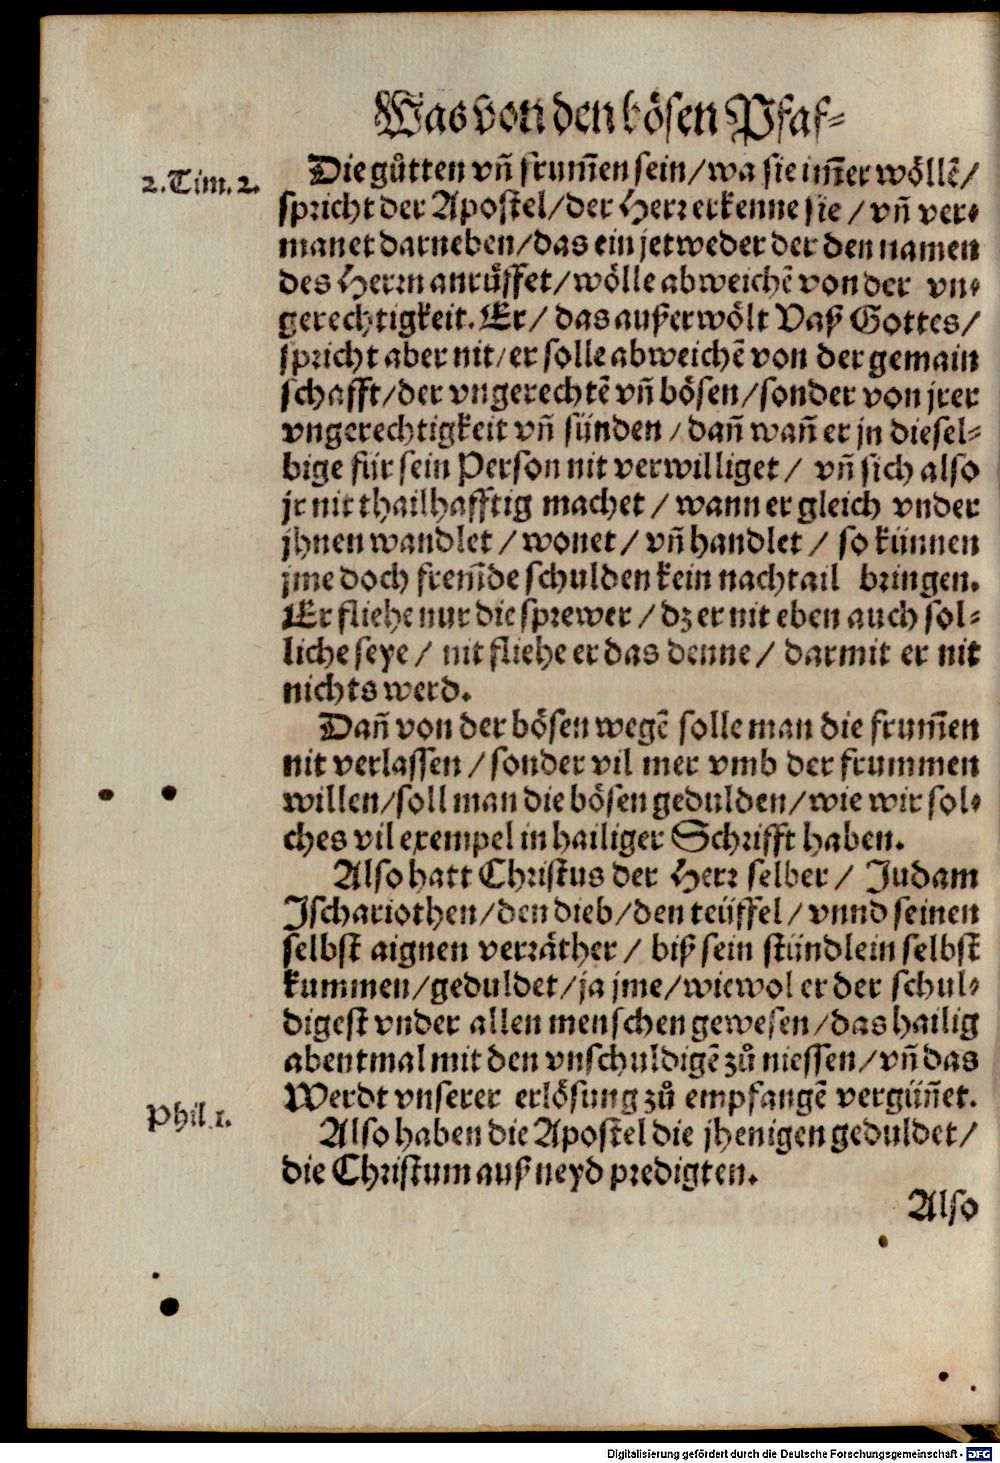 Was von den bösen Pfaf⸗
2. Tim. 2.
Die gůtten vñ frum̃en sein / wa sie im̃er wöllẽ /
spricht der Apostel / der Herr erkenne sie / vñ ver⸗
manet darneben / das ein jetweder der den namen
des Herrn anrůffet / wölle abweichẽ von der vn⸗
gerechtigkeit. Er / das außerwölt Vaß Gottes /
spricht aber nit / er solle abweichẽ von der gemain
schafft / der vngerechtẽ vñ bösen / sonder von jrer
vngerechtigkeit vñ sünden / dañ wañ er jn diesel⸗
bige für sein Person nit verwilliget / vñ sich also
jr nit thailhafftig machet / wann er gleich vnder
jhnen wandlet / wonet / vñ handlet / so künnen
jme doch frem̃de schulden kein nachtail bringen.
Er fliehe nur die sprewer / dz er nit eben auch sol⸗
liche seye / nit fliehe er das denne / darmit er nit
nichts werd.
Dañ von der bösen wegẽ solle man die frum̃en
nit verlassen / sonder vil mer vmb der frummen
willen / soll man die bösen gedulden / wie wir sol⸗
ches vil exempel in hailiger Schrifft haben.
Also hatt Christus der Herr selber / Judam
Jschariothen / den dieb / den teüffel / vnnd seinen
selbst aignen verräther / biß sein stündlein selbst
kummen / geduldet / ja jme / wiewol er der schul⸗
digest vnder allen menschen gewesen / das hailig
abentmal mit den vnschuldigẽ zů niessen / vñ das
Werdt vnserer erlösung zů empfangẽ vergüñet.
Phil. 1.
Also haben die Apostel die jhenigen geduldet /
die Christum auß neyd predigten.
Also
Digitalisierung gefördert durch die Deutsche Forschungsgemeinschaft - DFG